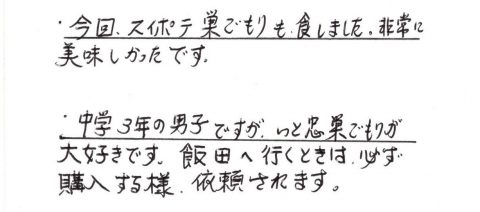 ・今回、スイポテ巣ごもりも、食しました。非常に
美味しかったです。
・中学3年の男子ですが、いと忠巣ごもりが
大好きです。飯田へ行くときは、必ず
購入する様、依頼されます。